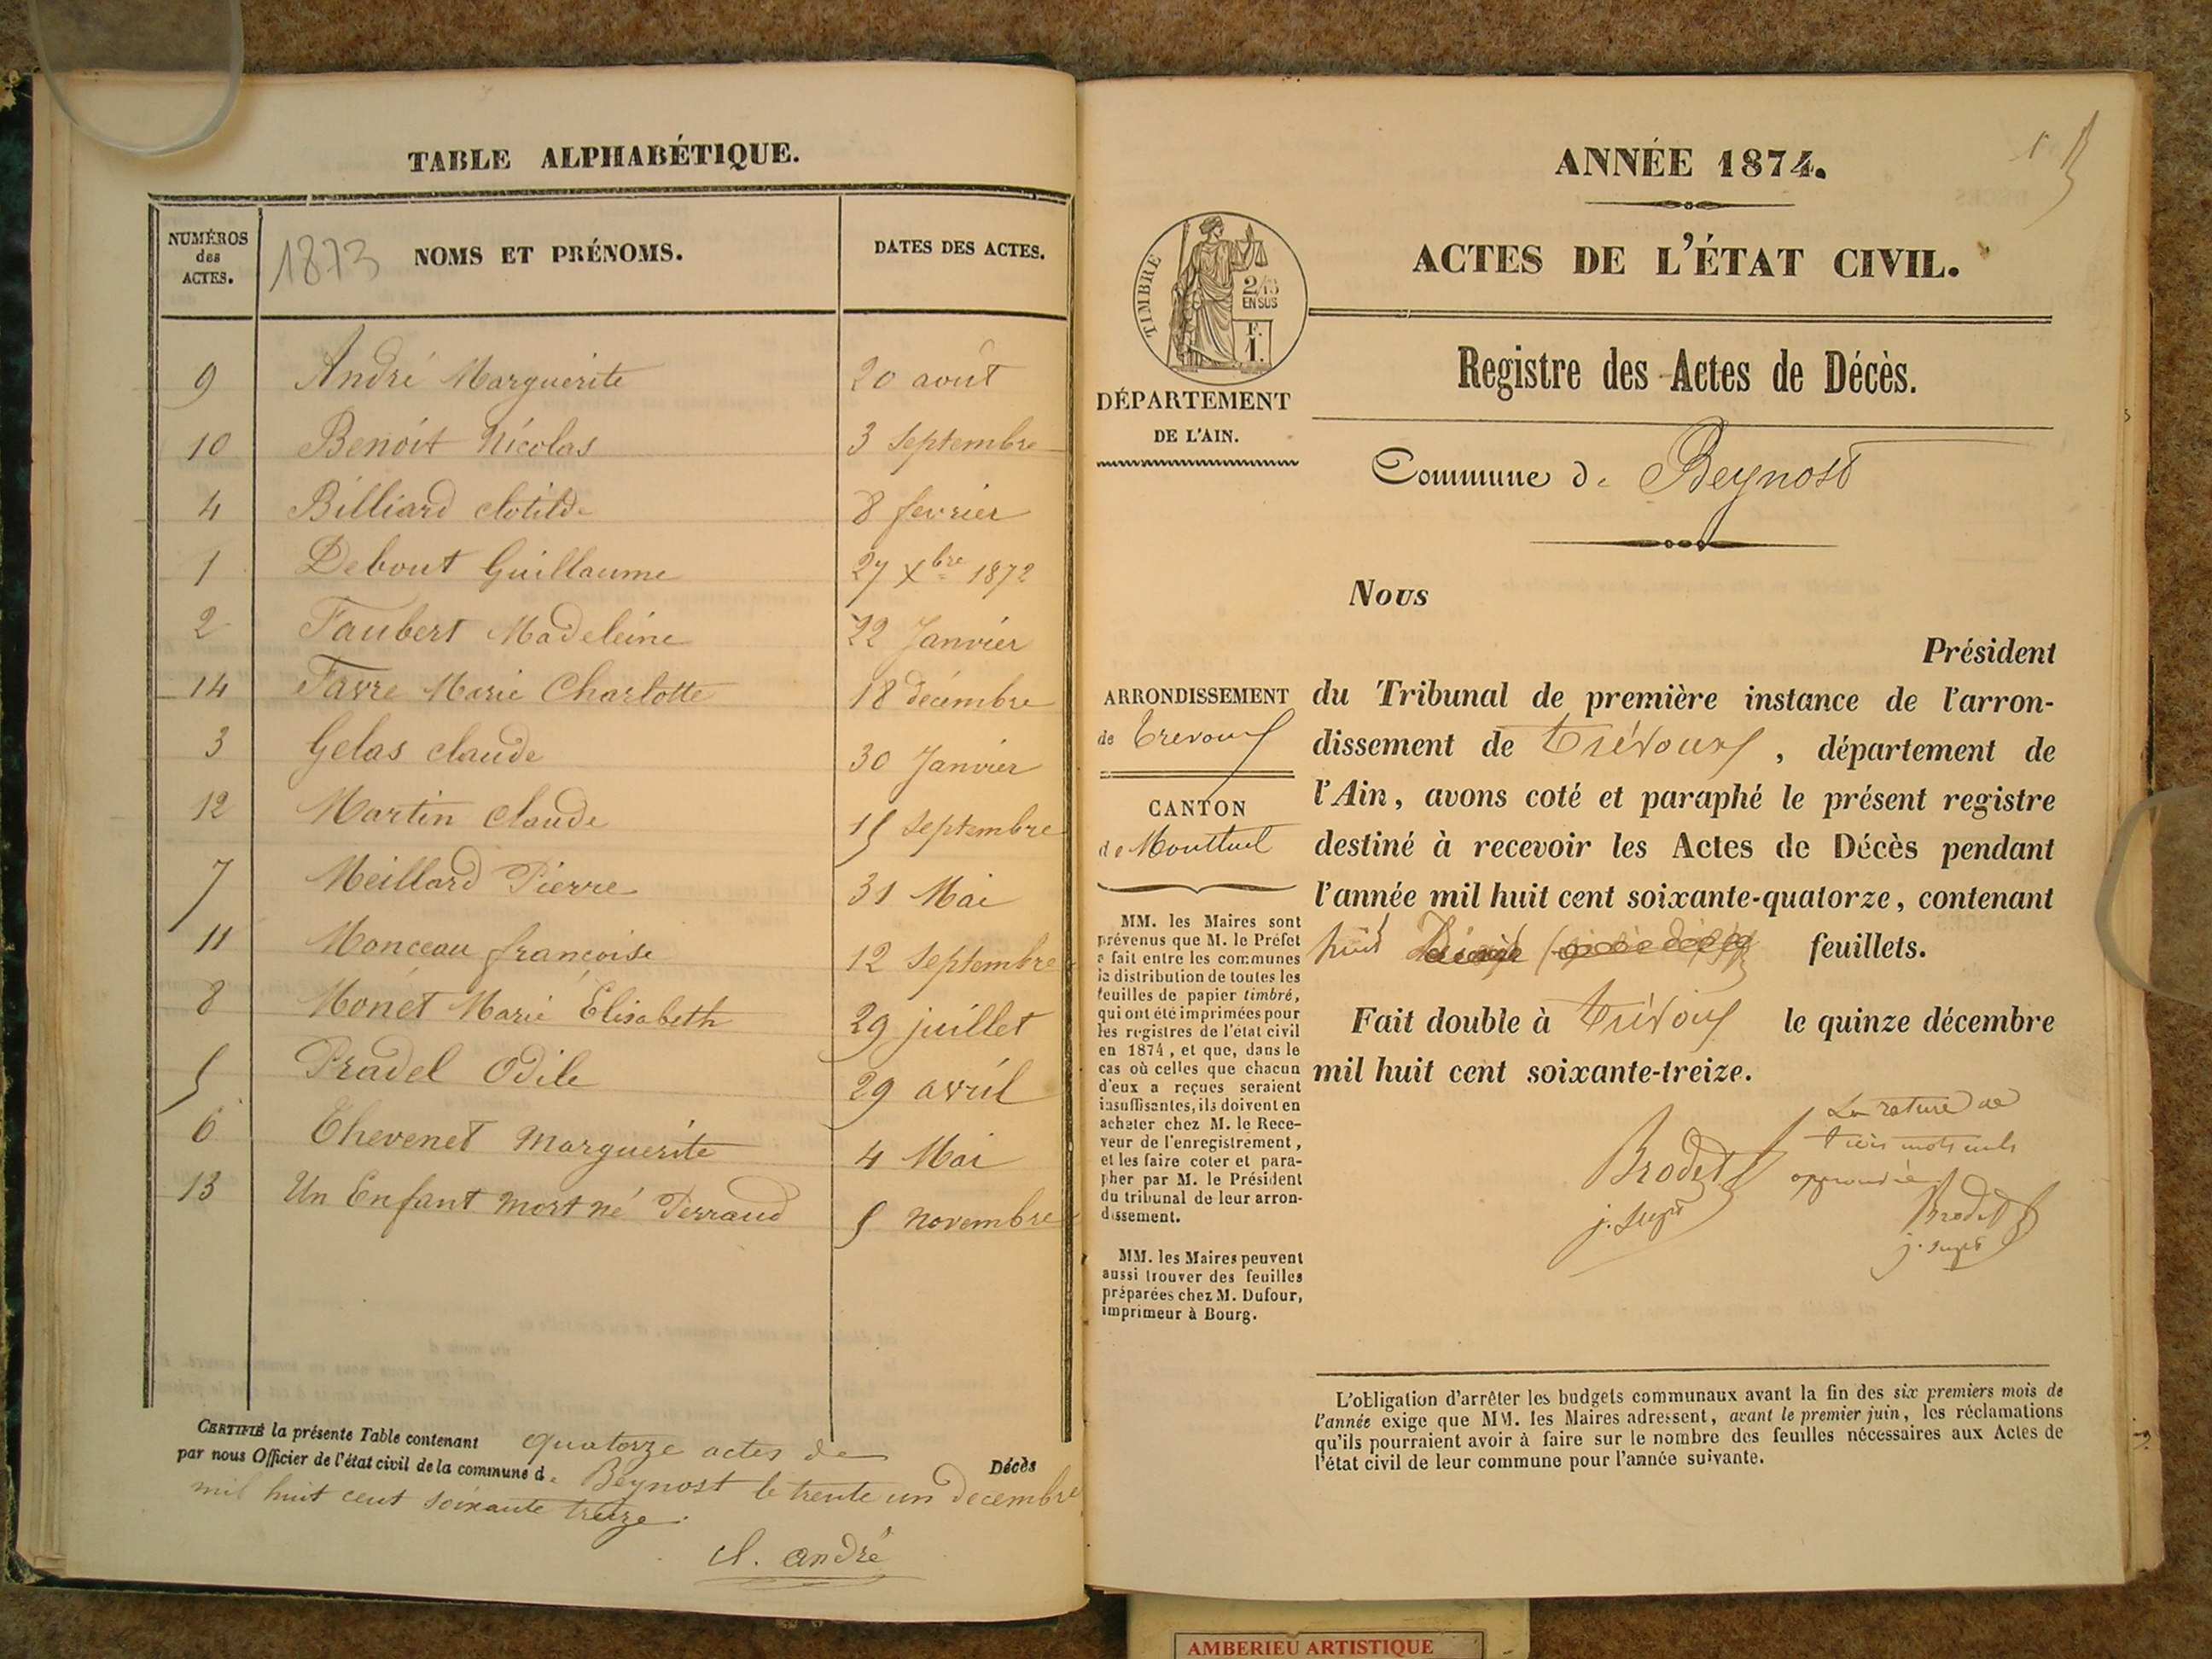 TABLE ALPHABÉTIQUE.
NUMÉROS des ACTES.
1873
NOMS ET PRÉNOMS.
DATES DES ACTES.
9 André Marguerite 20 août
10 Benoit Nicolas 3 Septembre
4 Billiard Clotilde 8 fevrier
1 Debout Guillaume 27 Xbre 1872
2 Faubert Madeleine 22 Janvier
14 Favre Marie Charlotte 18 décembre
3 Gelas Claude 30 Janvier
12 Martin Claude 15 Septembre
7 Meillard Pierre 31 Mai
11 Monceau françoise 12 Septembre
8 Monet Marie Élisabeth 29 juillet
5 Pradel Odile 29 avril
6 Thevenet Marguerite 4 Mai
13 Un Enfant mort né Perraud 5 novembre
CERTIFIÉ la présente Table contenant quatorze actes de Décès
par nous Officier de l'état civil de la commune de Beynost le trente un decembre
mil huit cent soixante treize.
cl. andré
ANNÉE 1874.
ACTES DE L'ÉTAT CIVIL.
TIMBRE
2/10
EN SUS
F.
1.
Registre des Actes de Décès.
DÉPARTEMENT
DE L'AIN.
Commune de Beynost
Nous
Président
ARRONDISSEMENT
de Trevoux
CANTON
de Montluel
du Tribunal de première instance de l'arron-
dissement de Trévoux, département de
l'Ain, avons coté et paraphé le présent registre
destiné à recevoir les Actes de Décès pendant
l'année mil huit cent soixante-quatorze, contenant
huit feuillets.
Fait double à Trévoux le quinze décembre
mil huit cent soixante-treize.
MM. les Maires sont
prévenus que M. le Préfet
a fait entre les communes
la distribution de toutes les
feuilles de papier timbré,
qui ont été imprimées pour
les registres de l'état civil
en 1874, et que, dans le
cas où celles que chacun
d'eux a reçues seraient
insuffisantes, ils doivent en
acheter chez M. le Rece-
veur de l'enregistrement,
et les faire coter et para-
pher par M. le Président
du tribunal de leur arron-
dissement.
MM. les Maires peuvent
aussi trouver des feuilles
préparées chez M. Dufour,
imprimeur à Bourg.
La rature de
trois mots nuls
approuvée
Brodet
j. supt
Brodet
j. supt
L'obligation d'arrêter les budgets communaux avant la fin des six premiers mois de
l'année exige que MM. les Maires adressent, avant le premier juin, les réclamations
qu'ils pourraient avoir à faire sur le nombre des feuilles nécessaires aux Actes de
l'état civil de leur commune pour l'année suivante.
AMBERIEU ARTISTIQUE